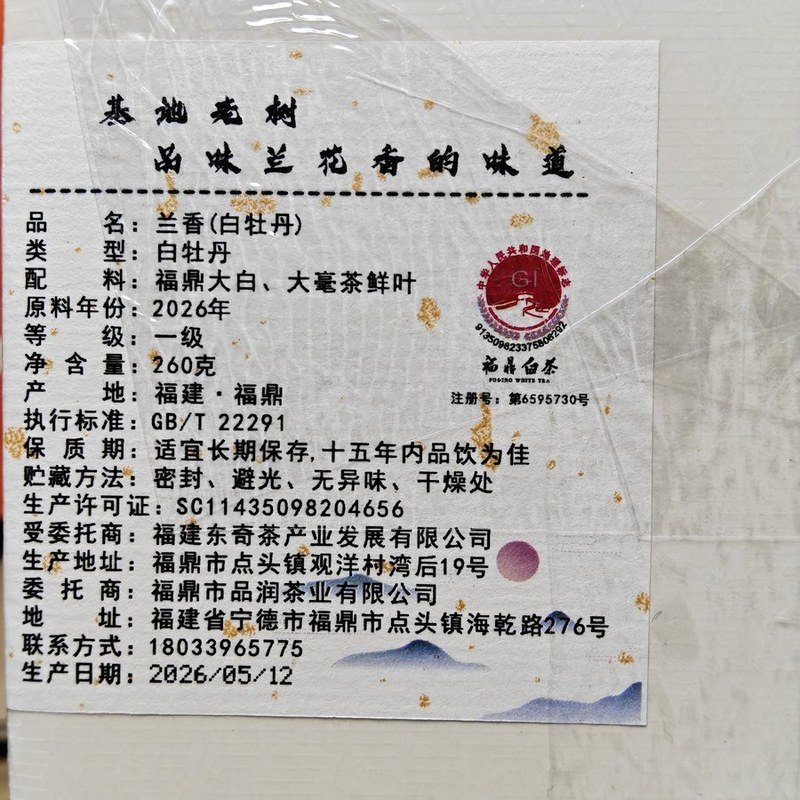 基地老树
品味兰花香的味道
品 名：兰香(白牡丹)
类 型：白牡丹
配 料：福鼎大白、大毫茶鲜叶
原料年份：2026年
等 级：一级
净 含 量：260克
产 地：福建·福鼎
执行标准：GB/T 22291
保 质 期：适宜长期保存,十五年内品饮为佳
贮藏方法：密封、避光、无异味、干燥处
生产许可证：SC11435098204656
受委托商：福建东奇茶产业发展有限公司
生产地址：福鼎市点头镇观洋村湾后19号
委 托 商：福鼎市品润茶业有限公司
地 址：福建省宁德市福鼎市点头镇海乾路276号
联系方式：18033965775
生产日期：2026/05/12
中华人民共和国地理标志
GI
福鼎白茶
FUDING WHITE TEA
注册号：第6595730号